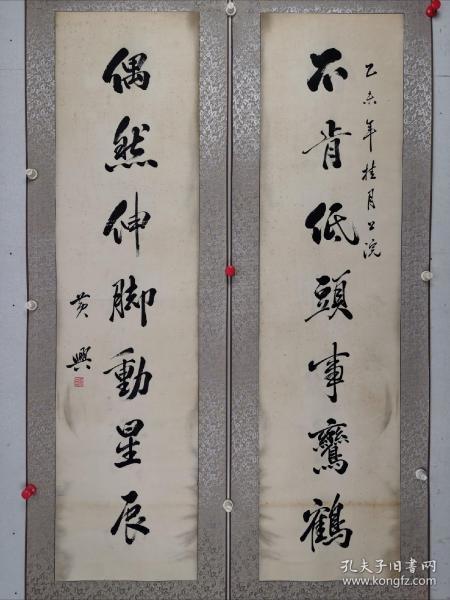 乙未年桂月上浣
不肯低頭事鸞鶴
偶然伸脚動星辰
黄興
孔夫子旧书网
www.kongfz.com